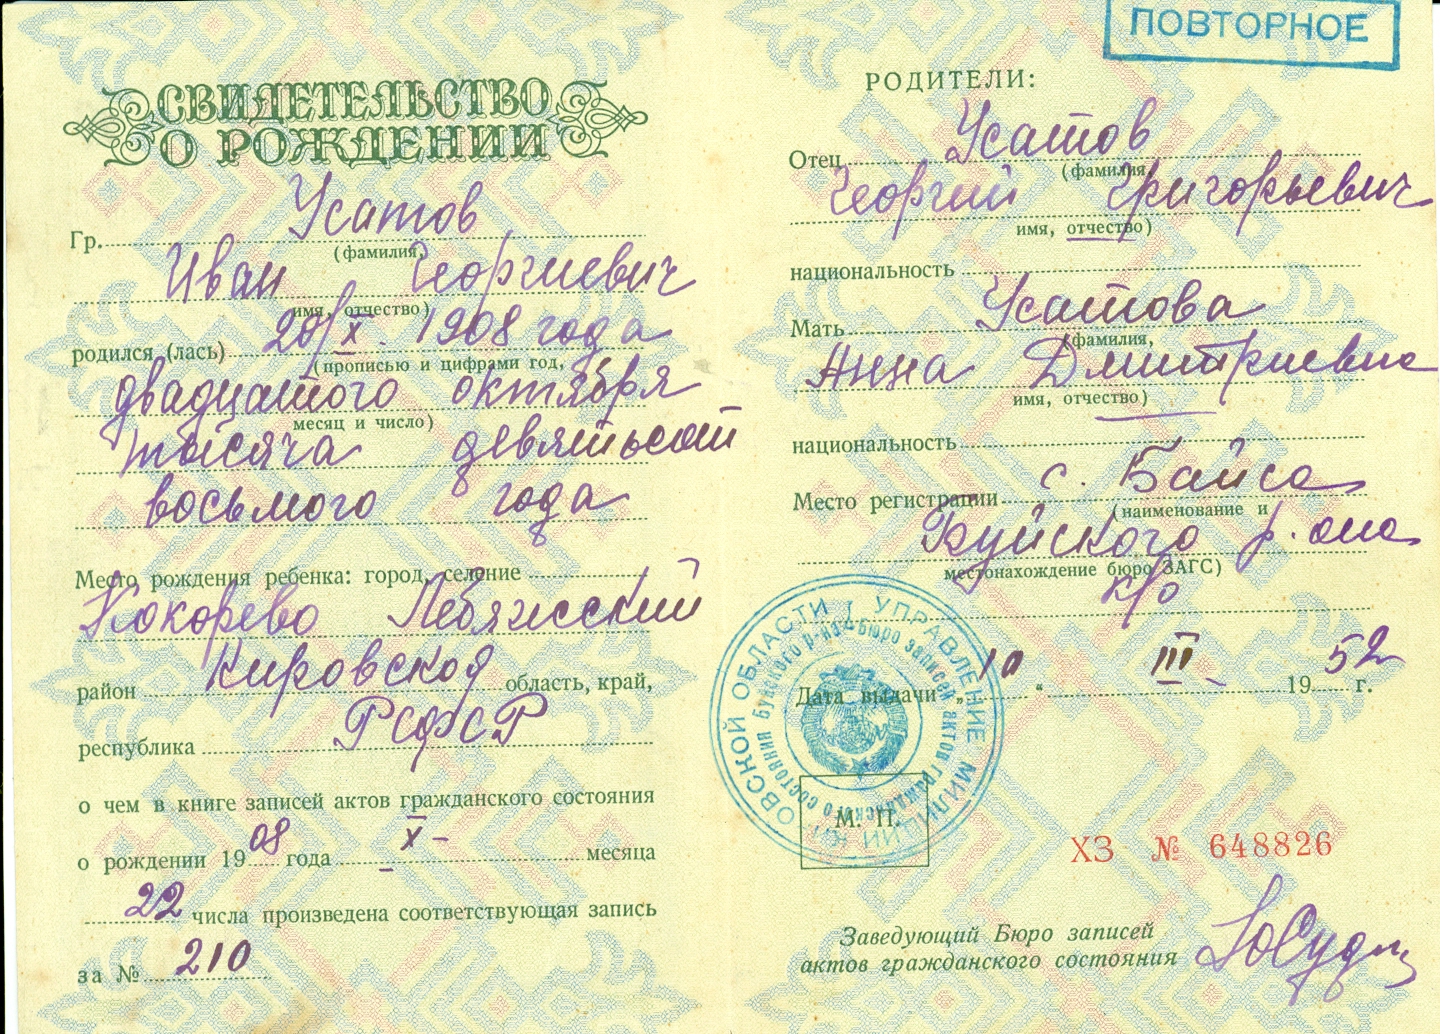 СВИДЕТЕЛЬСТВО
О РОЖДЕНИИ
Гр. Усатов
(фамилия,
Иван Георгиевич
имя, отчество)
родился (лась) 20/X. 1908 года
(прописью и цифрами год,
двадцатого октября
месяц и число)
тысяча девятьсот
восьмого года
Место рождения ребенка: город, селение
Кокорево Лебяжский
район Кировской область, край,
республика РСФСР
о чем в книге записей актов гражданского состояния
о рождении 1908 года X- месяца
22 числа произведена соответствующая запись
за № 210
ПОВТОРНОЕ
РОДИТЕЛИ:
Отец Усатов
(фамилия,
Георгий Григорьевич
имя, отчество)
национальность
Мать Усатова
(фамилия,
Анна Дмитриевна
имя, отчество)
национальность
Место регистрации с. Байса
(наименование и
района
местонахождение бюро ЗАГС)
к/о
Дата выдачи „10“ III 1952 г.
ОВСКОЙ ОБЛАСТИ УПРАВЛЕНИЕ МИЛИЦИИ
р-на бюро записей актов гражданского состояния
М. П.
ХЗ № 648826
Заведующий Бюро записей
актов гражданского состояния